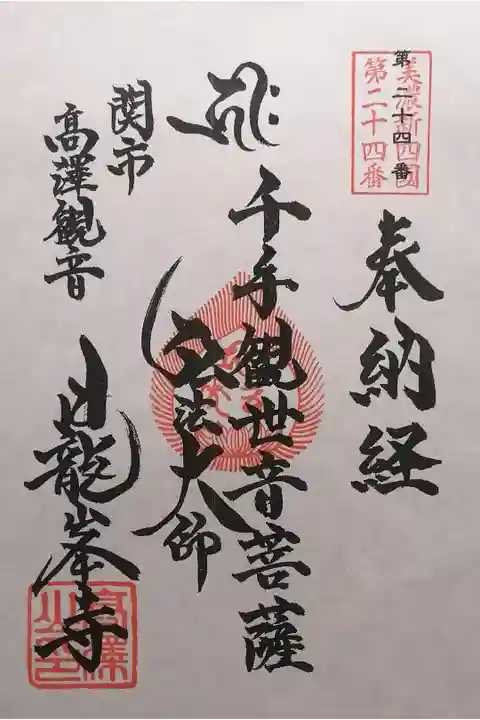 美濃新四國
第二十四番
第二十四番
奉納経
千手観世音菩薩
弘法大師
関市
高澤観音
日龍峯寺